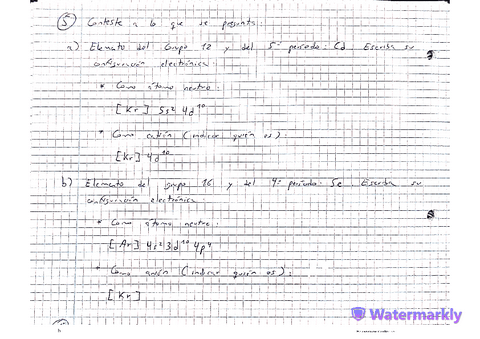 5 Conteste a lo que se presenta.
a) Elemento del Grupo 12 y del 5º período: Cd. Escriba su
configuración electrónica.
* Como átomo neutro:
[Kr] 5s² 4d¹⁰
* Como catión (indicar quién es):
[Kr] 4d¹⁰
b) Elemento del grupo 16 y del 4º período: Se. Escriba su
configuración electrónica.
* Como átomo neutro:
[Ar] 4s² 3d¹⁰ 4p⁴
* Como anión (indicar quién es):
[Kr]
Watermarkly